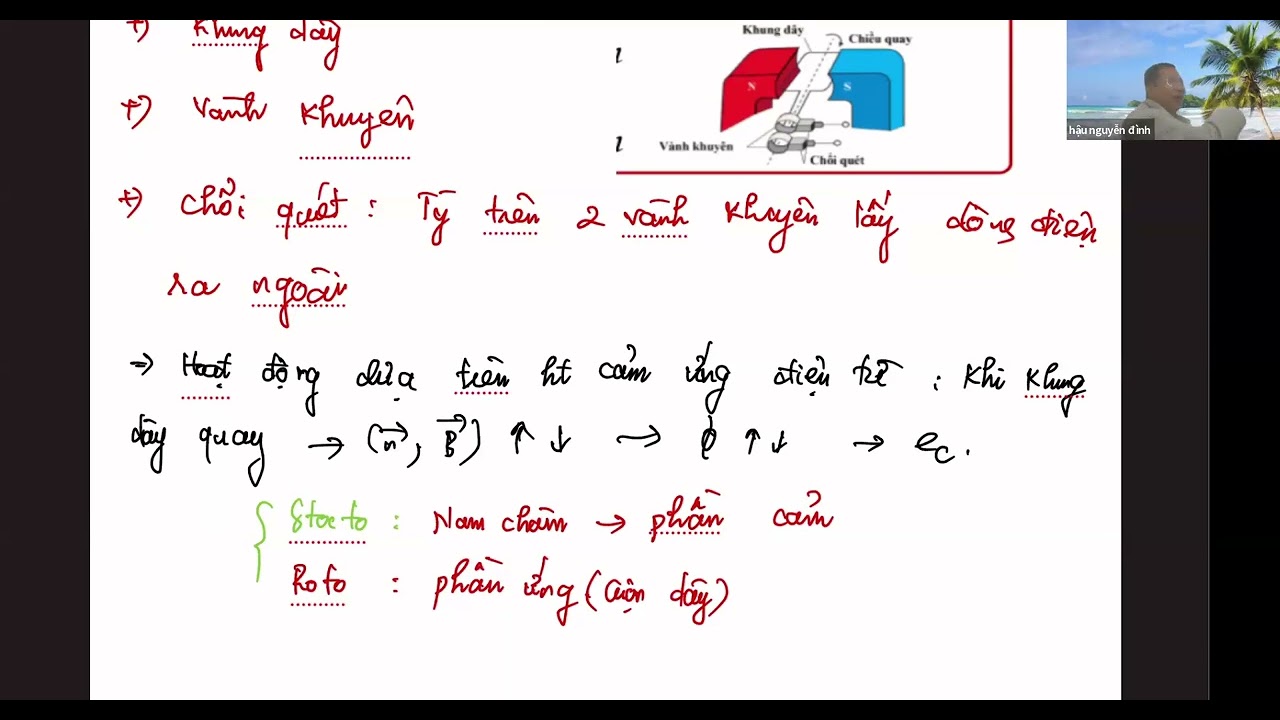 +) Khung dây
Khung dây
Chiều quay
N
S
Vành khuyên
Chổi quét
+) Vành khuyên
+) Chổi quét : Tỳ trên 2 vành khuyên lấy dòng điện
ra ngoài
→ Hoạt động dựa trên ht cảm ứng điện từ : Khi khung
dây quay → (n, B) ↑ ↓ → Φ ↑ ↓ → ec.
Stato : Nam châm → phần cảm
Roto : phần ứng (cuộn dây)
hậu nguyễn đình